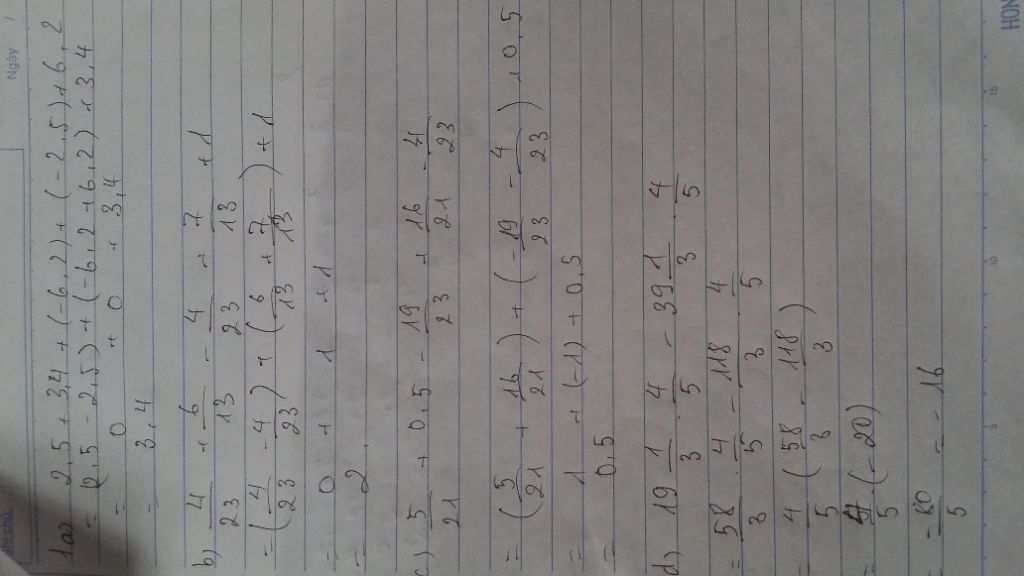 Ngày
1a) 2,5 + 3,4 + (-6,2) + (-2,5) + 6,2
= (2,5 - 2,5) + (-6,2 + 6,2) + 3,4
= 0 + 0 + 3,4
= 3,4
b) 4/23 + 6/13 - 4/23 + 7/13 + 1
= (4/23 - 4/23) + (6/13 + 7/13) + 1
= 0 + 1 + 1
= 2
c) 5/21 + 0,5 - 19/23 + 16/21 - 4/23
= (5/21 + 16/21) + (-19/23 - 4/23) + 0,5
= 1 + (-1) + 0,5
= 0,5
d) 19 1/3 . 4/5 - 39 1/3 . 4/5
= 58/3 . 4/5 - 118/3 . 4/5
= 4/5 (58/3 - 118/3)
= 4/5 . (-20)
= -80/5 = -16
HON
5 10 15